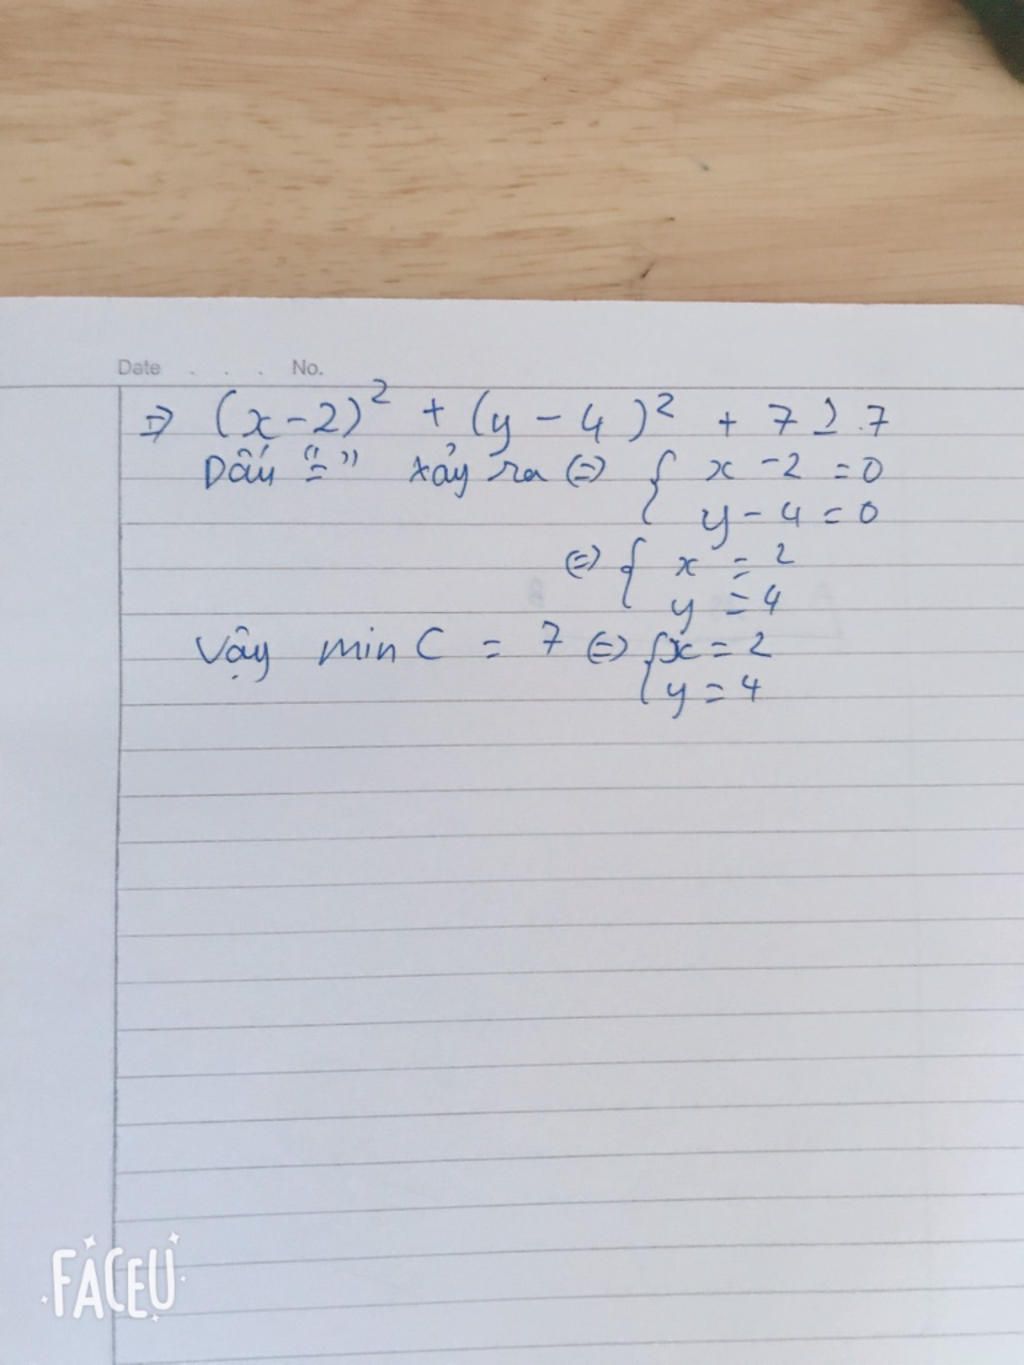 Date . . . No.
=> (x-2)² + (y-4)² + 7 ≥ 7
Dấu "=" xảy ra <=> { x - 2 = 0
y - 4 = 0
<=> { x = 2
y = 4
Vậy min C = 7 <=> { x = 2
y = 4
FACEU